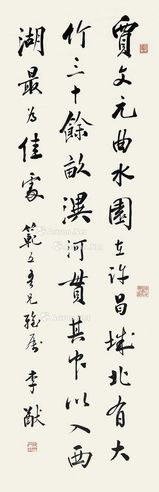 賈文元曲水園在許昌城北有大
竹三十餘畝潩河貫其中以入西
湖最為佳處
範之吾兄雅屬 李猷